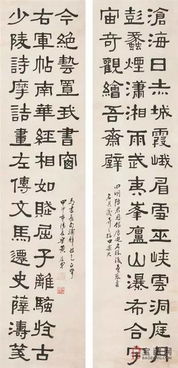 滄海日赤城霞峨眉雪巫峽雲洞庭月
彭蠡煙瀟湘雨武夷峯廬山瀑布合宇
宙奇觀繪吾齋壁
少陵詩摩詰畫左傳文馬遷史薛濤箋
右軍帖南華經相如賦屈子離騷收古
今絶藝置我書窗